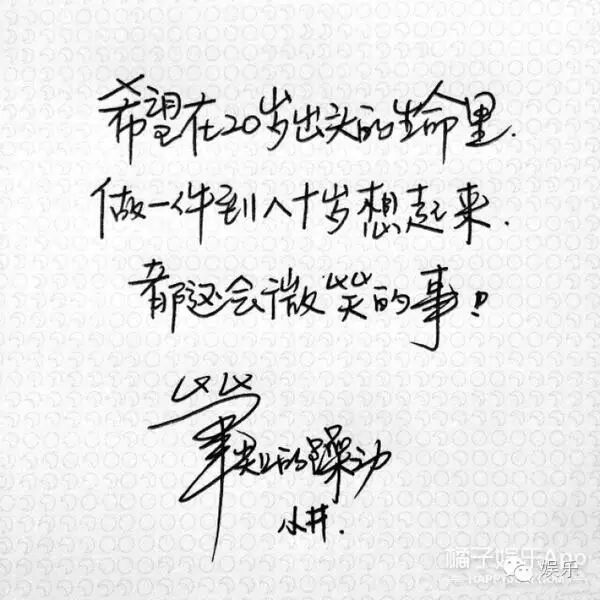 希望在20岁出头的生命里.
做一件到八十岁想起来.
都还会微笑的事!
笔尖上的躁动
小井.
橘子娱乐App
HAPPYJUZI.COM
娱乐